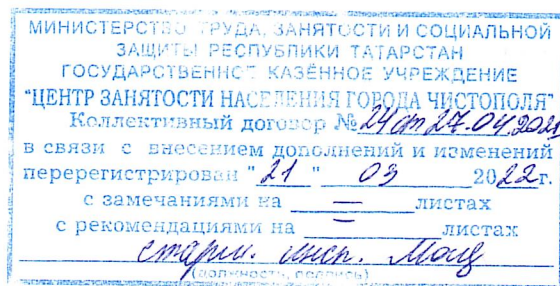 МИНИСТЕРСТВО ТРУДА, ЗАНЯТОСТИ И СОЦИАЛЬНОЙ
ЗАЩИТЫ РЕСПУБЛИКИ ТАТАРСТАН
ГОСУДАРСТВЕННОЕ КАЗЁННОЕ УЧРЕЖДЕНИЕ
"ЦЕНТР ЗАНЯТОСТИ НАСЕЛЕНИЯ ГОРОДА ЧИСТОПОЛЯ"
Коллективный договор № 24 от 27.04.2021
в связи с внесением дополнений и изменений
перерегистрирован "21" 03 2022г.
с замечаниями на — листах
с рекомендациями на — листах
старш. инсп.
(должность, подпись)